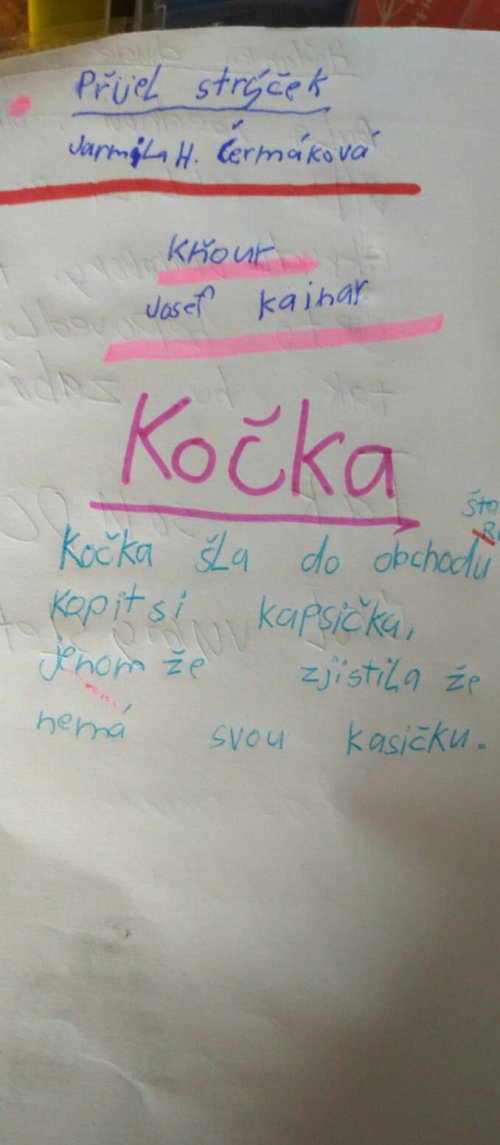 Přijel strýček
Jarmila H. Čermáková
Kňour
Josef Kainar
Kočka
Kočka šla do obchodu
kopit si kapsička,
jenom že zjistila že
nemá svou kasičku.